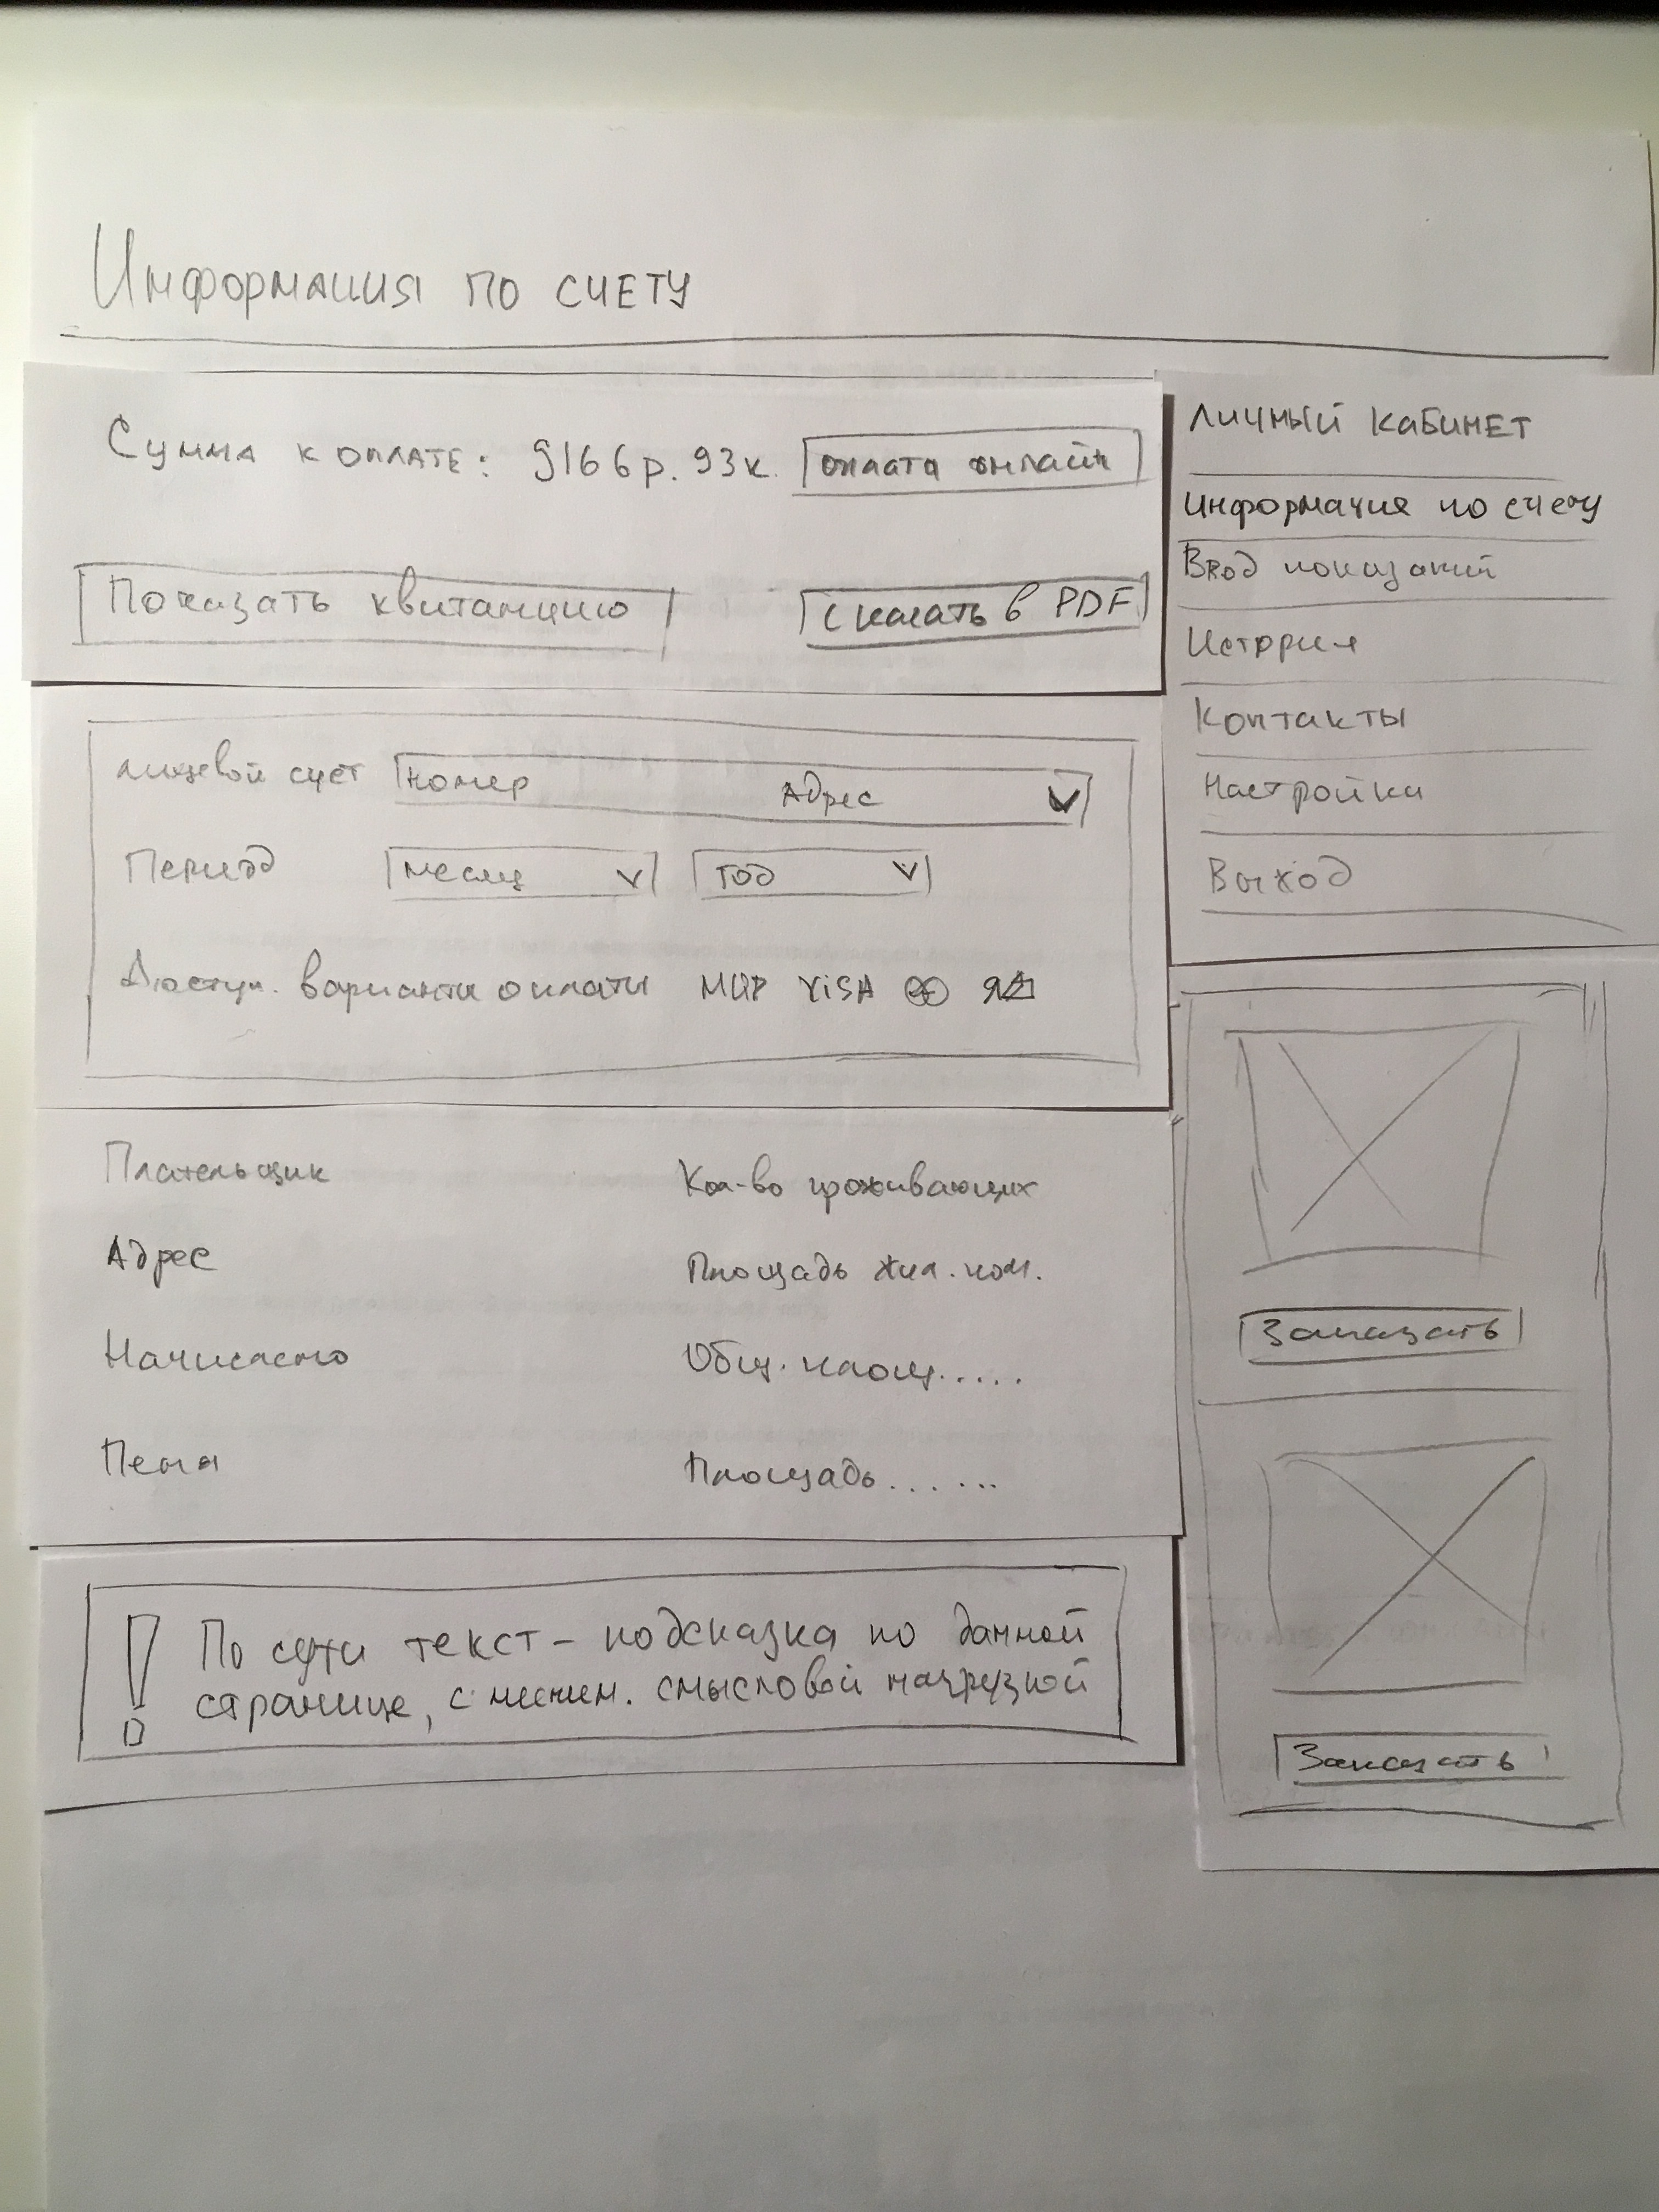 Информация по счету
Сумма к оплате: 9166р. 93к. оплата онлайн
Показать квитанцию скачать в PDF
лицевой счет номер Адрес
Период месяц год
Доступ. варианты оплаты МИР VISA
Плательщик Кол-во проживающих
Адрес Площадь жил. пом.
Начислено Общ. площ.....
Пеня Площадь......
! По сути текст - подсказка по данной
странице, с миним. смысловой нагрузкой
Личный кабинет
Информация по счету
Ввод показаний
История
Контакты
Настройки
Выход
Заказать
Заказать